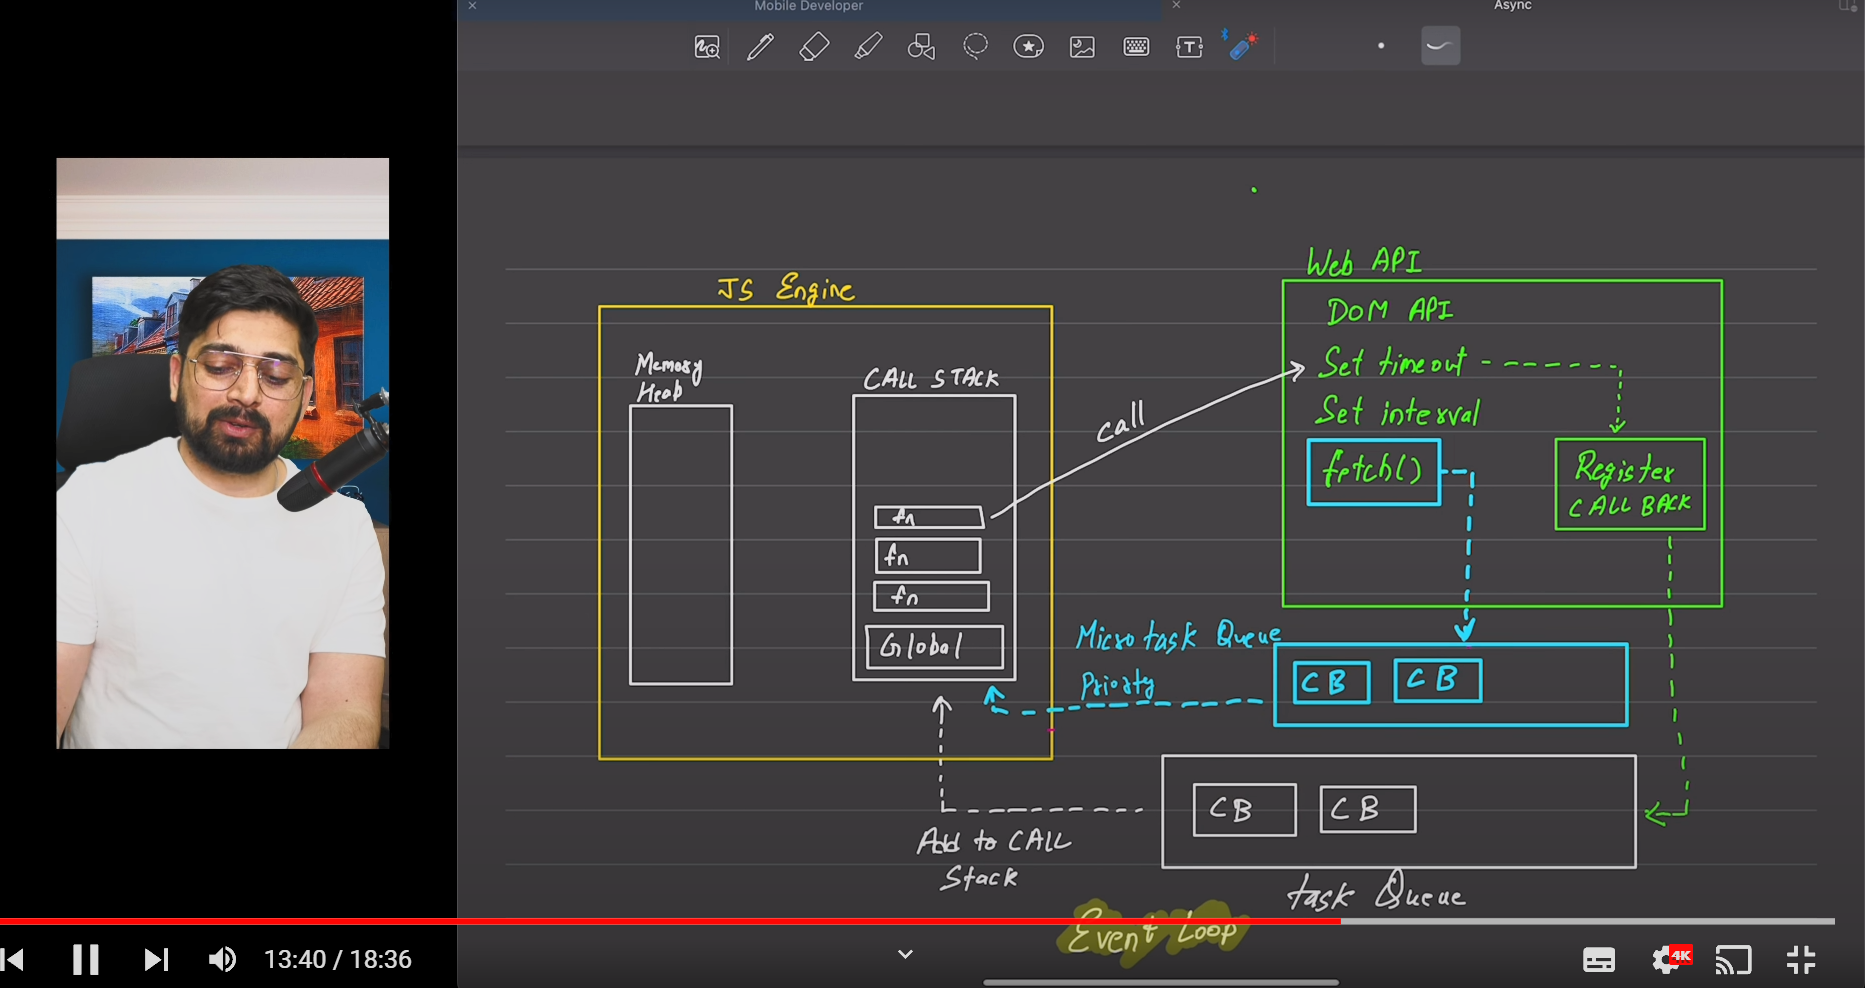 Mobile Developer
Async
JS Engine
Memory
Heap
CALL STACK
fn
fn
fn
Global
call
Web API
DOM API
Set timeout
Set interval
fetch()
Register
CALL BACK
Micro task Queue
Priority
CB
CB
CB
CB
Add to CALL
Stack
task Queue
Event Loop
13:40 / 18:36
4K